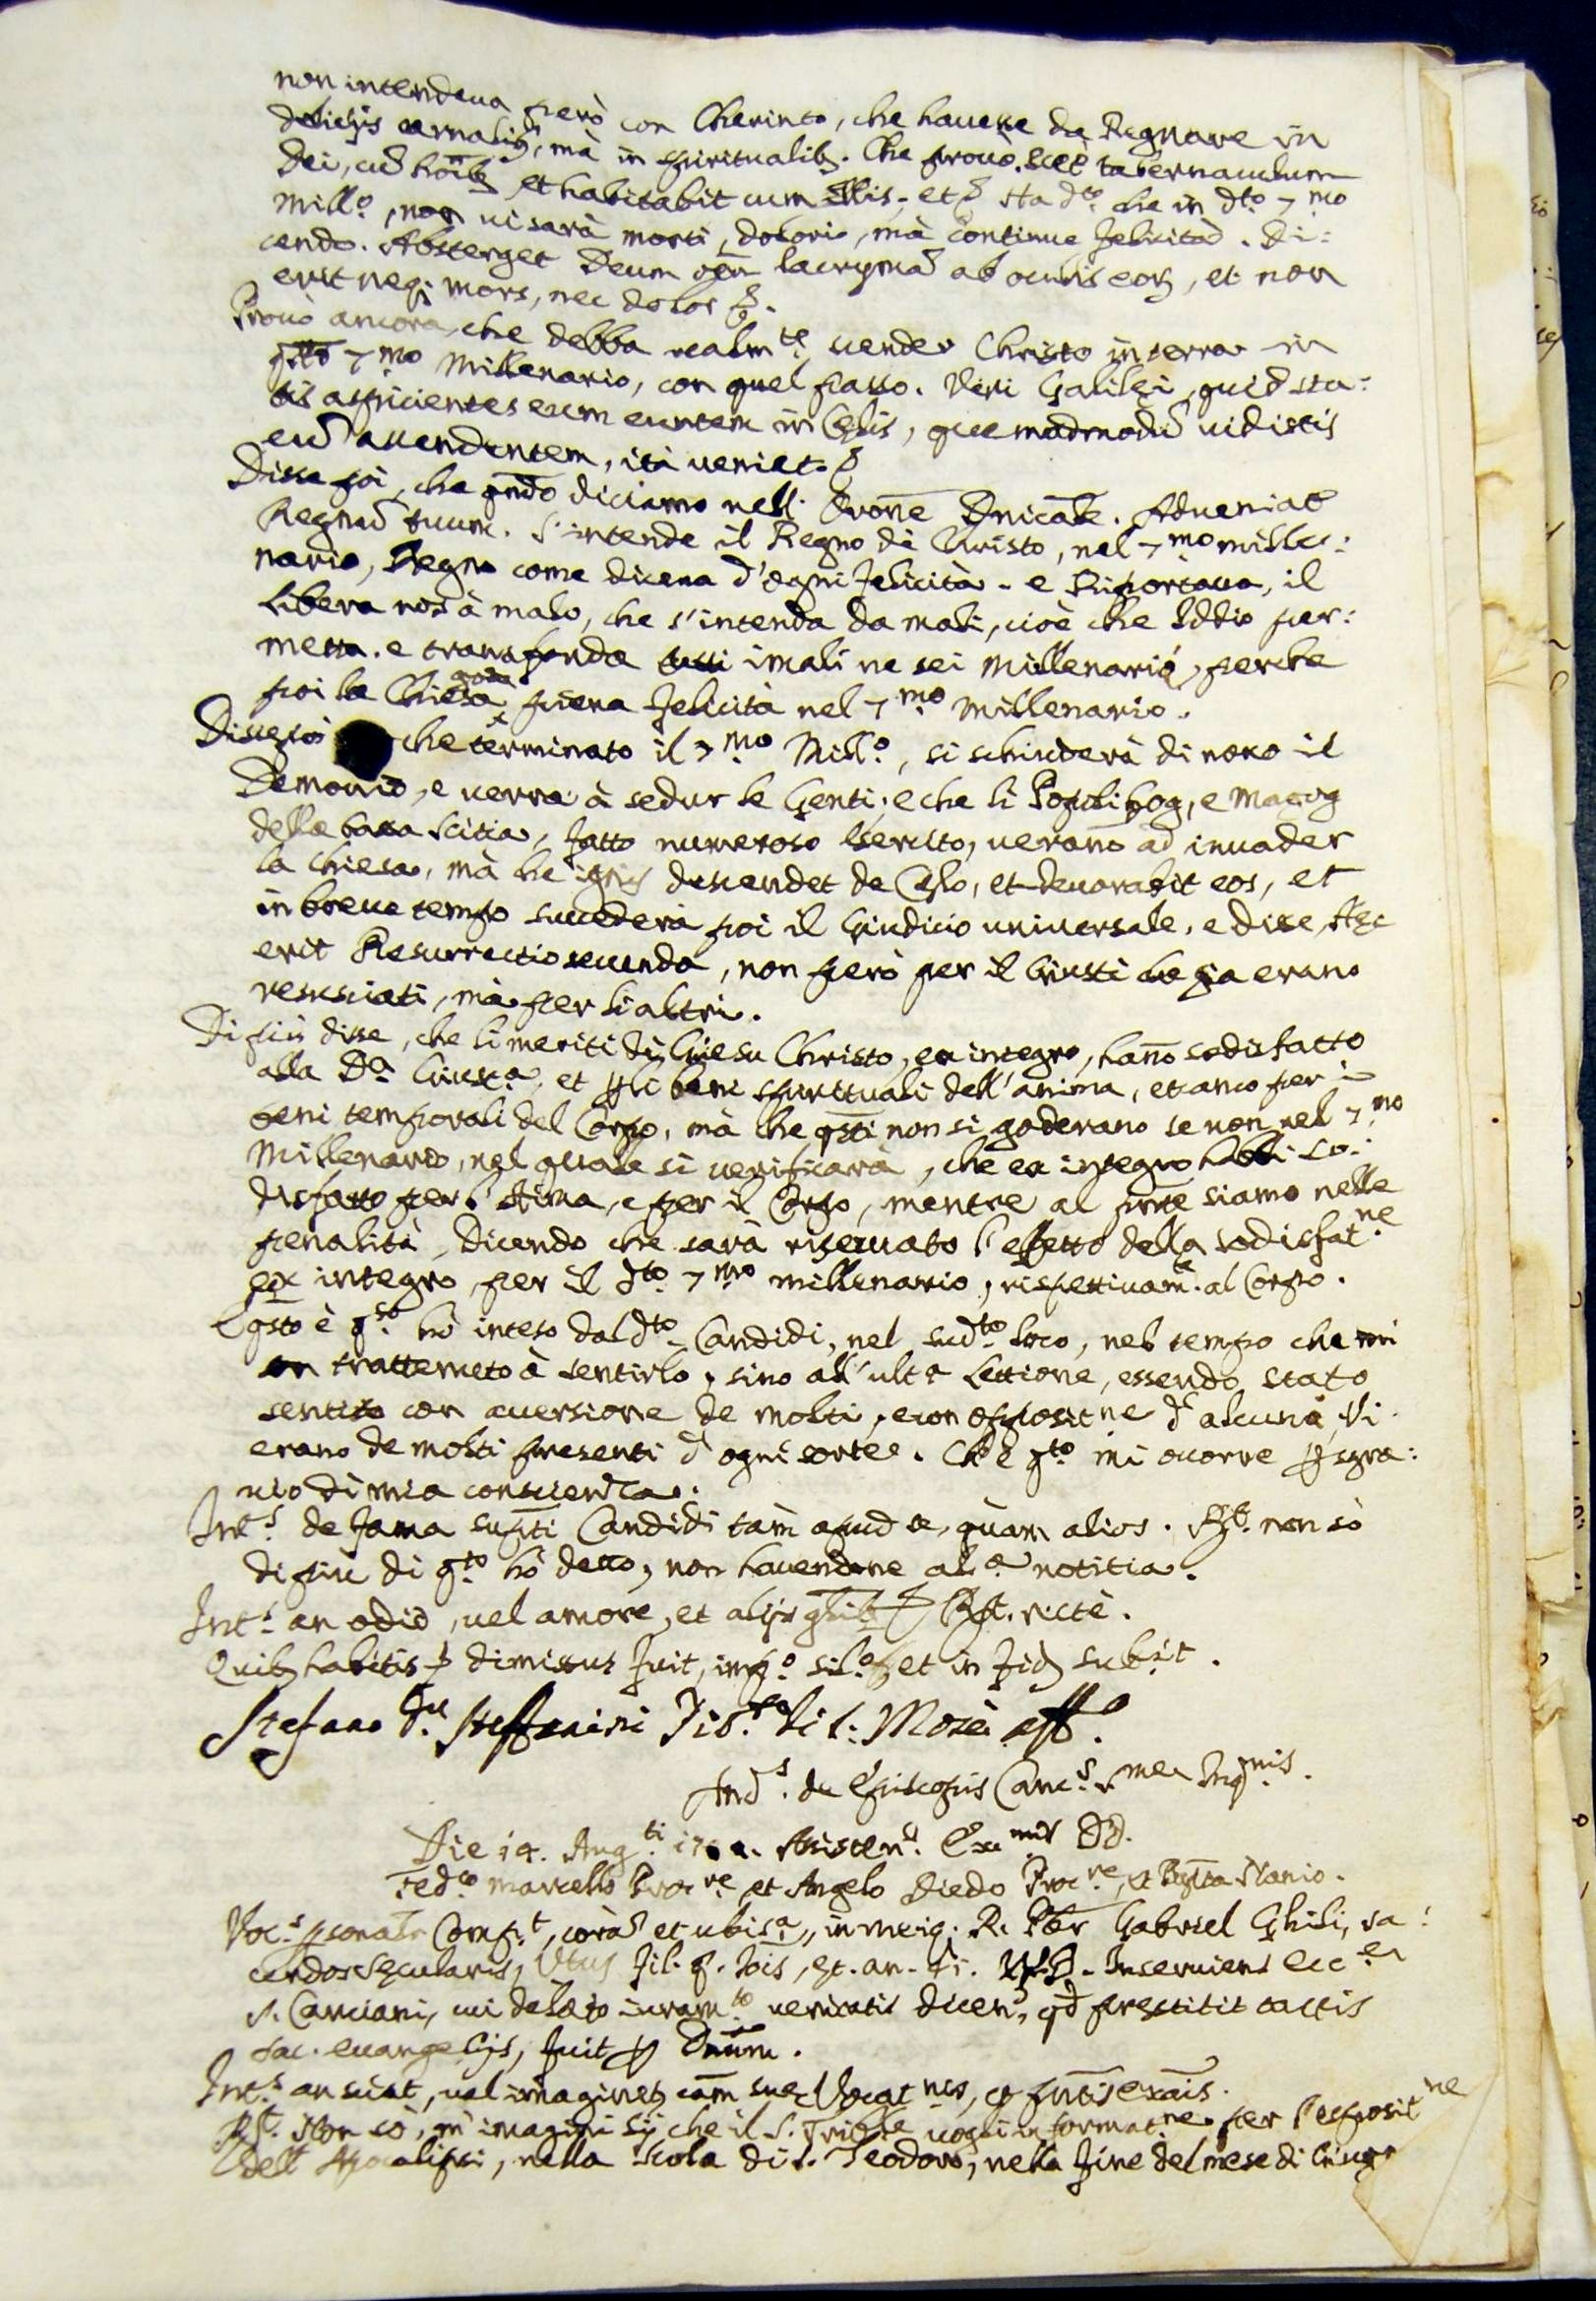 non intendeua però con Cherinto, che hauesse da Regnare in
delicijs carnalib9, mà in spiritualib9. Che prouò. Ecce tabernaculum
Dei, cũ hoĩb9 et habitabit cum illis; et che in dto 7mo
Millo, non ui sarà morti, dolorio, mà continue felicità. Di:
cendo. Absterget Deum oẽm lacrymã ab oculis eor, et non
erit neq; mors, nec dolor &.
Prouò ancora, che debba realmte uender Christo in terra in
7mo Millenario, con quel passo. Viri Galilei, quid sta:
tis aspicientes eum euntem in Celis, quemadmodũ uidistis
eũ ascendentem, ità ueniet &
Disse poi, che qñdo diciamo nell' Orone Dnicale. Adueniat
Regnũ tuum. S'intende il Regno di Christo, nel 7mo mille:
nario, Regno come diceua d'ogni felicità. e Riportaua, il
Libera nos à malo, che s'intenda da mali, cioè che Iddio per:
metta. e transfonda tutti i mali ne sei Millenarij, perche
poi la Chiesa goda piena felicità nel 7mo Millenario.
Disse poi che terminato il 7mo Millo, si schiuderà di nouo il
Demonio, e uerrà à sedur le Genti; e che li Popoli Gog, e Magog
della bassa Scitia, fatto numeroso Esercito, uerano ad inuader
la Chiesa, mà che ignis descendet de Celo, et deuorabit eos, et
in breue tempo succederà poi il Giudicio uniuersale, e disse, Hec
erit Resurrectio secunda, non però per il Giusti che già erano
resusciati, mà per li altri.
Di più disse, che li meriti di Giesu Christo, ex integro, hano sodisfatto
alla Da Giusta, et p li beni spirituali dell'anima, et anco per i
beni temporali del Corpo, mà che qsti non si goderano se non nel 7mo
Millenario, nel quale si uerificarà, che ex integro habbi so:
disfatto per l'Anima, e per il Corpo, mentre al pnte siamo nelle
penalità, dicendo che sarà riseruato l'effetto della sodisfatne
ex integro, per il dto 7mo millenario, rispettiuamte al Corpo.
E qsto è qto hò inteso dal dto Candidi, nel sudto loco, nel tempo che mi
son trattenuto à sentirlo, sino all'ulta Lettione, essendo stato
sentito con auersione de molti, e con oppositne d'alcuni, Vi
erano de molti presenti d'ogni sorte. Che qto mi occorre p sgra:
uio di mia conscienza.
Ints de fama supti Candidi tam apud se, quam alios. Rt. non sò
di più di qto hò detto, non hauendone ala notitia.
Ints an odio, uel amore, et alijs gñlib9 & Rt. rectè.
Quib9 habitis & dimissus fuit, impo silo, et in fid subst.
Stefano
Ands. de Episcopis Cancs. Inqnis.
Die 14. Augti Assisten. Excmis DD.
Fedco Marcello Procre, et Angelo Diedo Procre, et Bapta Nanio.
Vocs psonalr Compt, corã et ubi sa, in meiq. R. Pbr Gabriel Ghisi, sa:
cerdos secularis, Vtus fil. q. Iois, et. an. Inseruiens Ecca
S. Canciani, cui delato iuramto ueritatis dicen, qd prestitit tactis
sac. euangelijs, fuit p Dnum.
Ints an sciat, uel imaginet cam sue Vocatnis, et pntis exais.
Rt. Non sò, m'imagini sij che il S. Trible uogli informatne per l'espositne
dell'Apocalipsi, nella Scola di S. Teodoro, nella fine del mese di Giugo